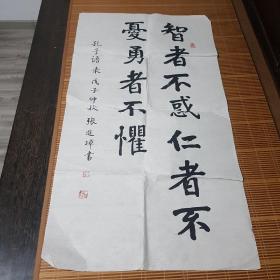 智者不惑仁者不
憂勇者不懼
孔子語录戊子仲秋 張延 書